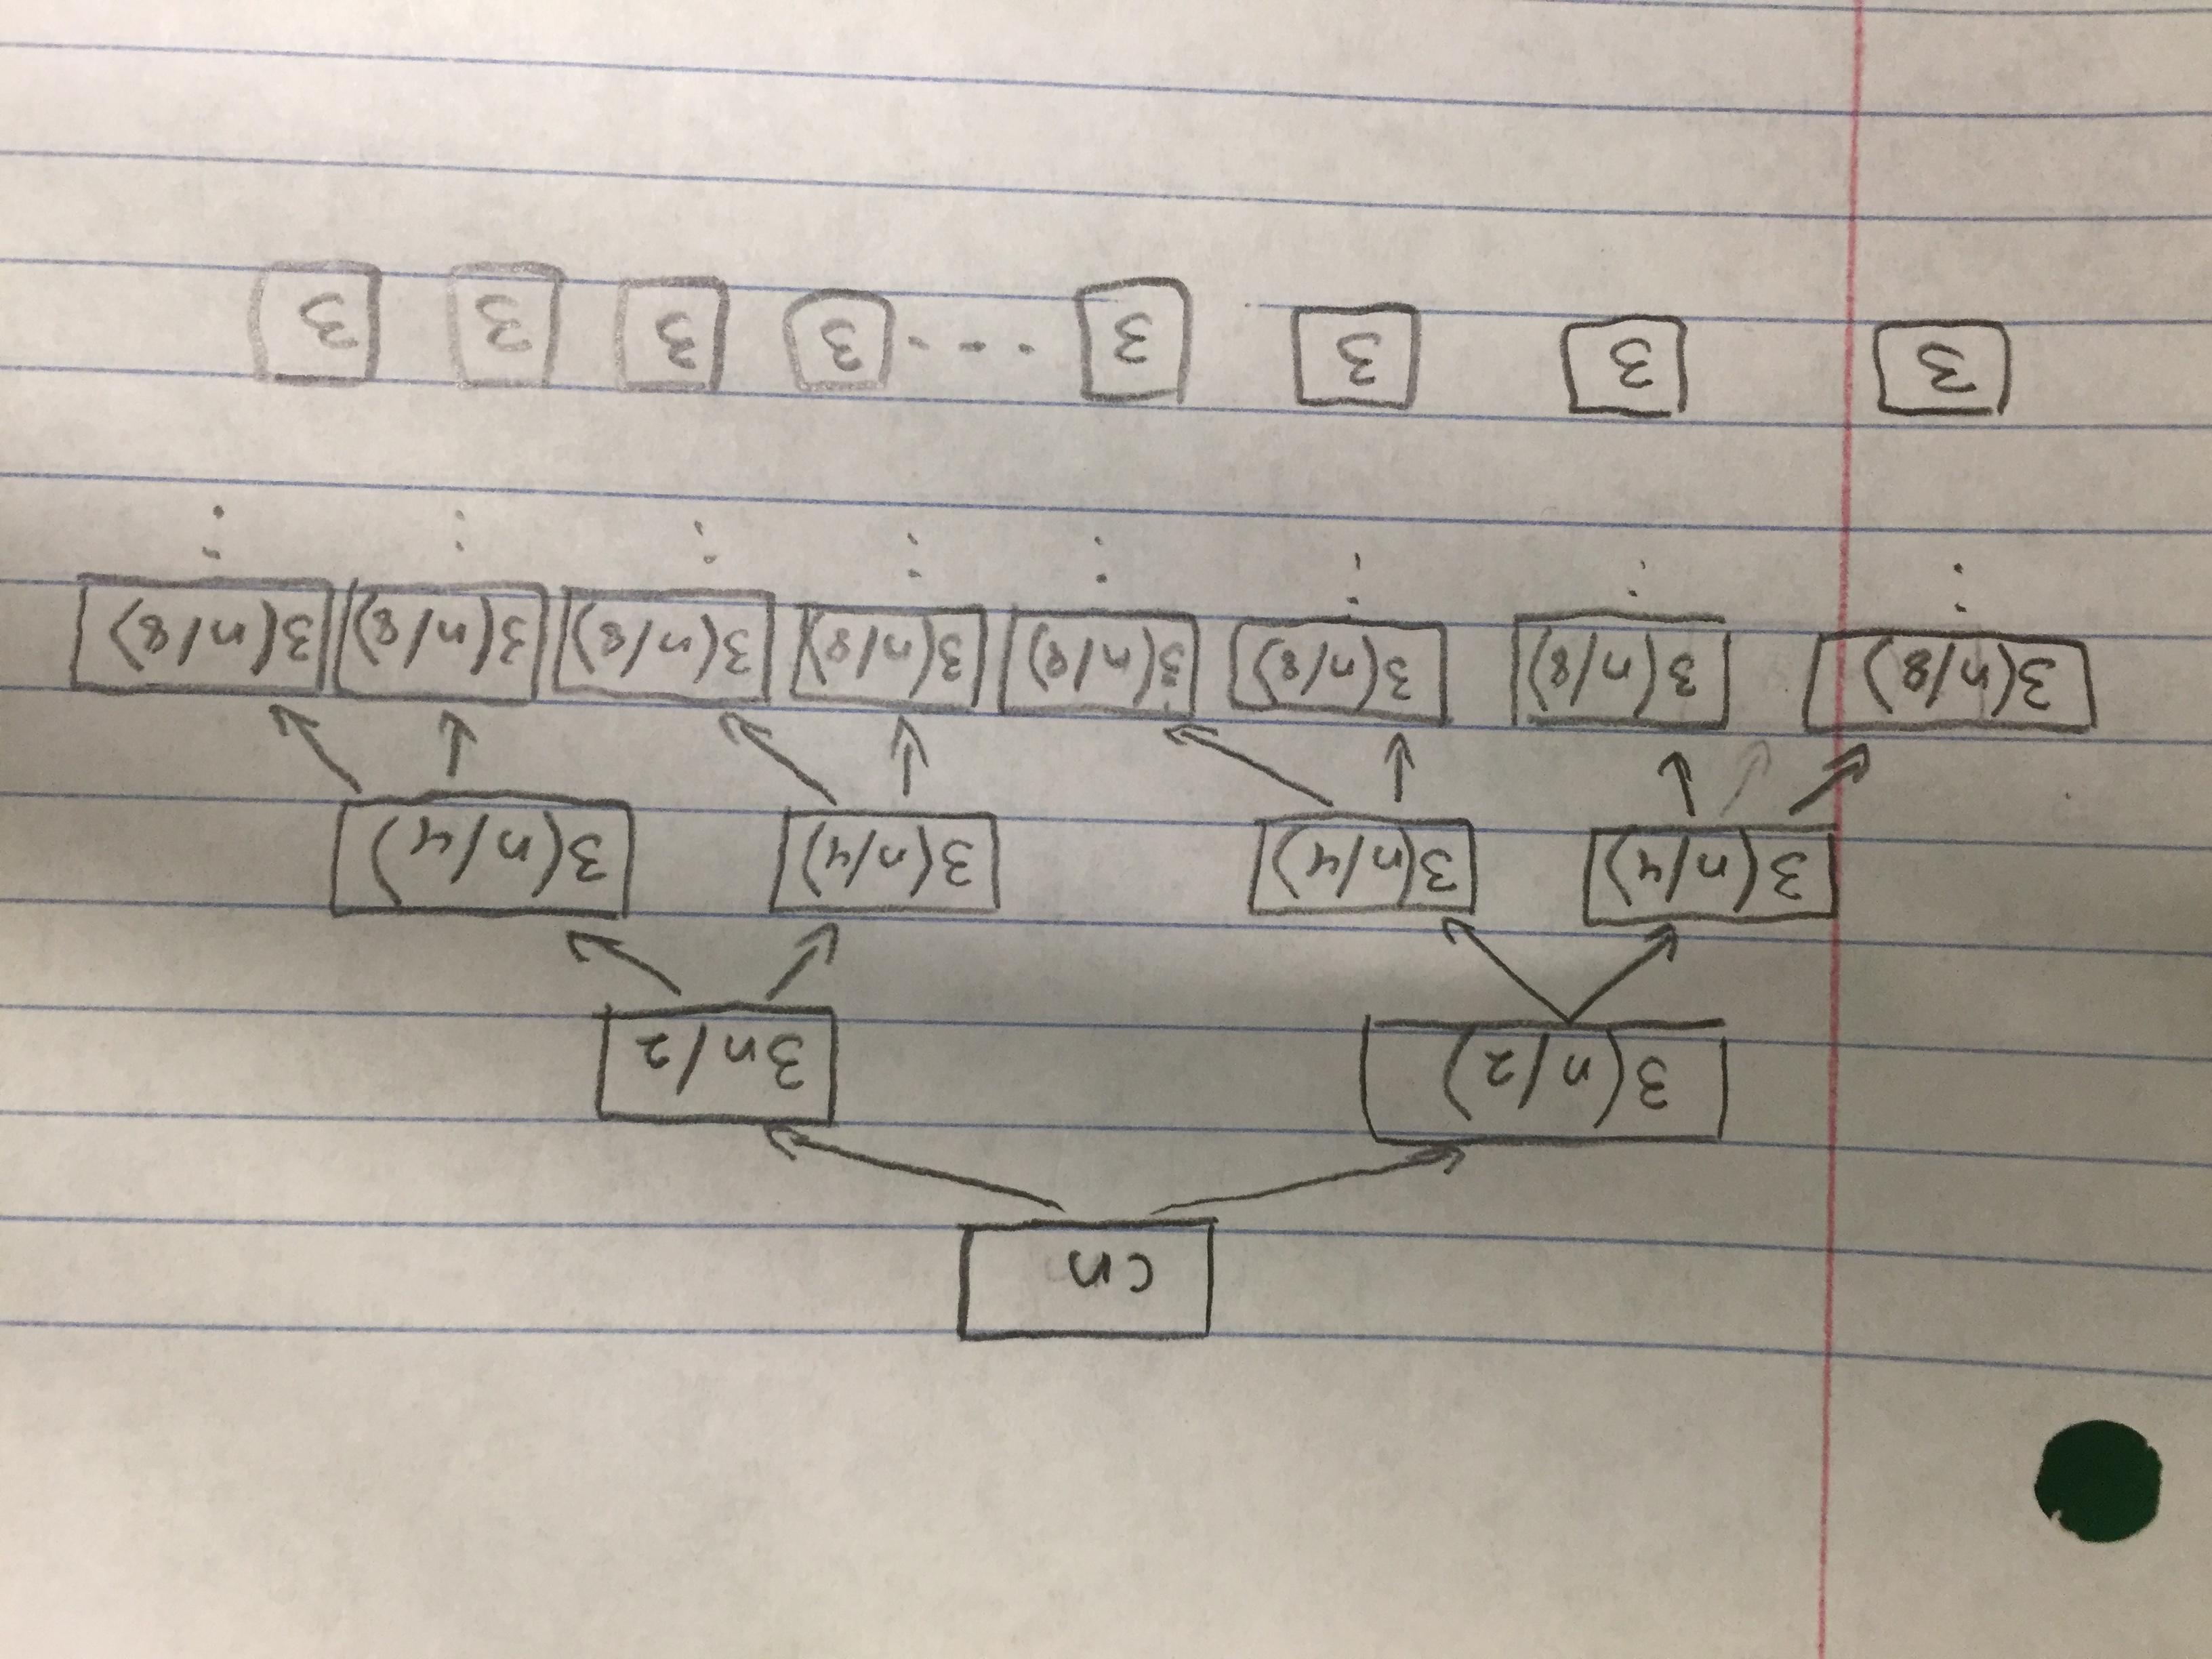 cn
3(n/2) 3n/2
3(n/4) 3(n/4) 3(n/4) 3(n/4)
3(n/8) 3(n/8) 3(n/8) 3(n/8) 3(n/8) 3(n/8) 3(n/8) 3(n/8)
3 3 3 3 ---- 3 3 3 3